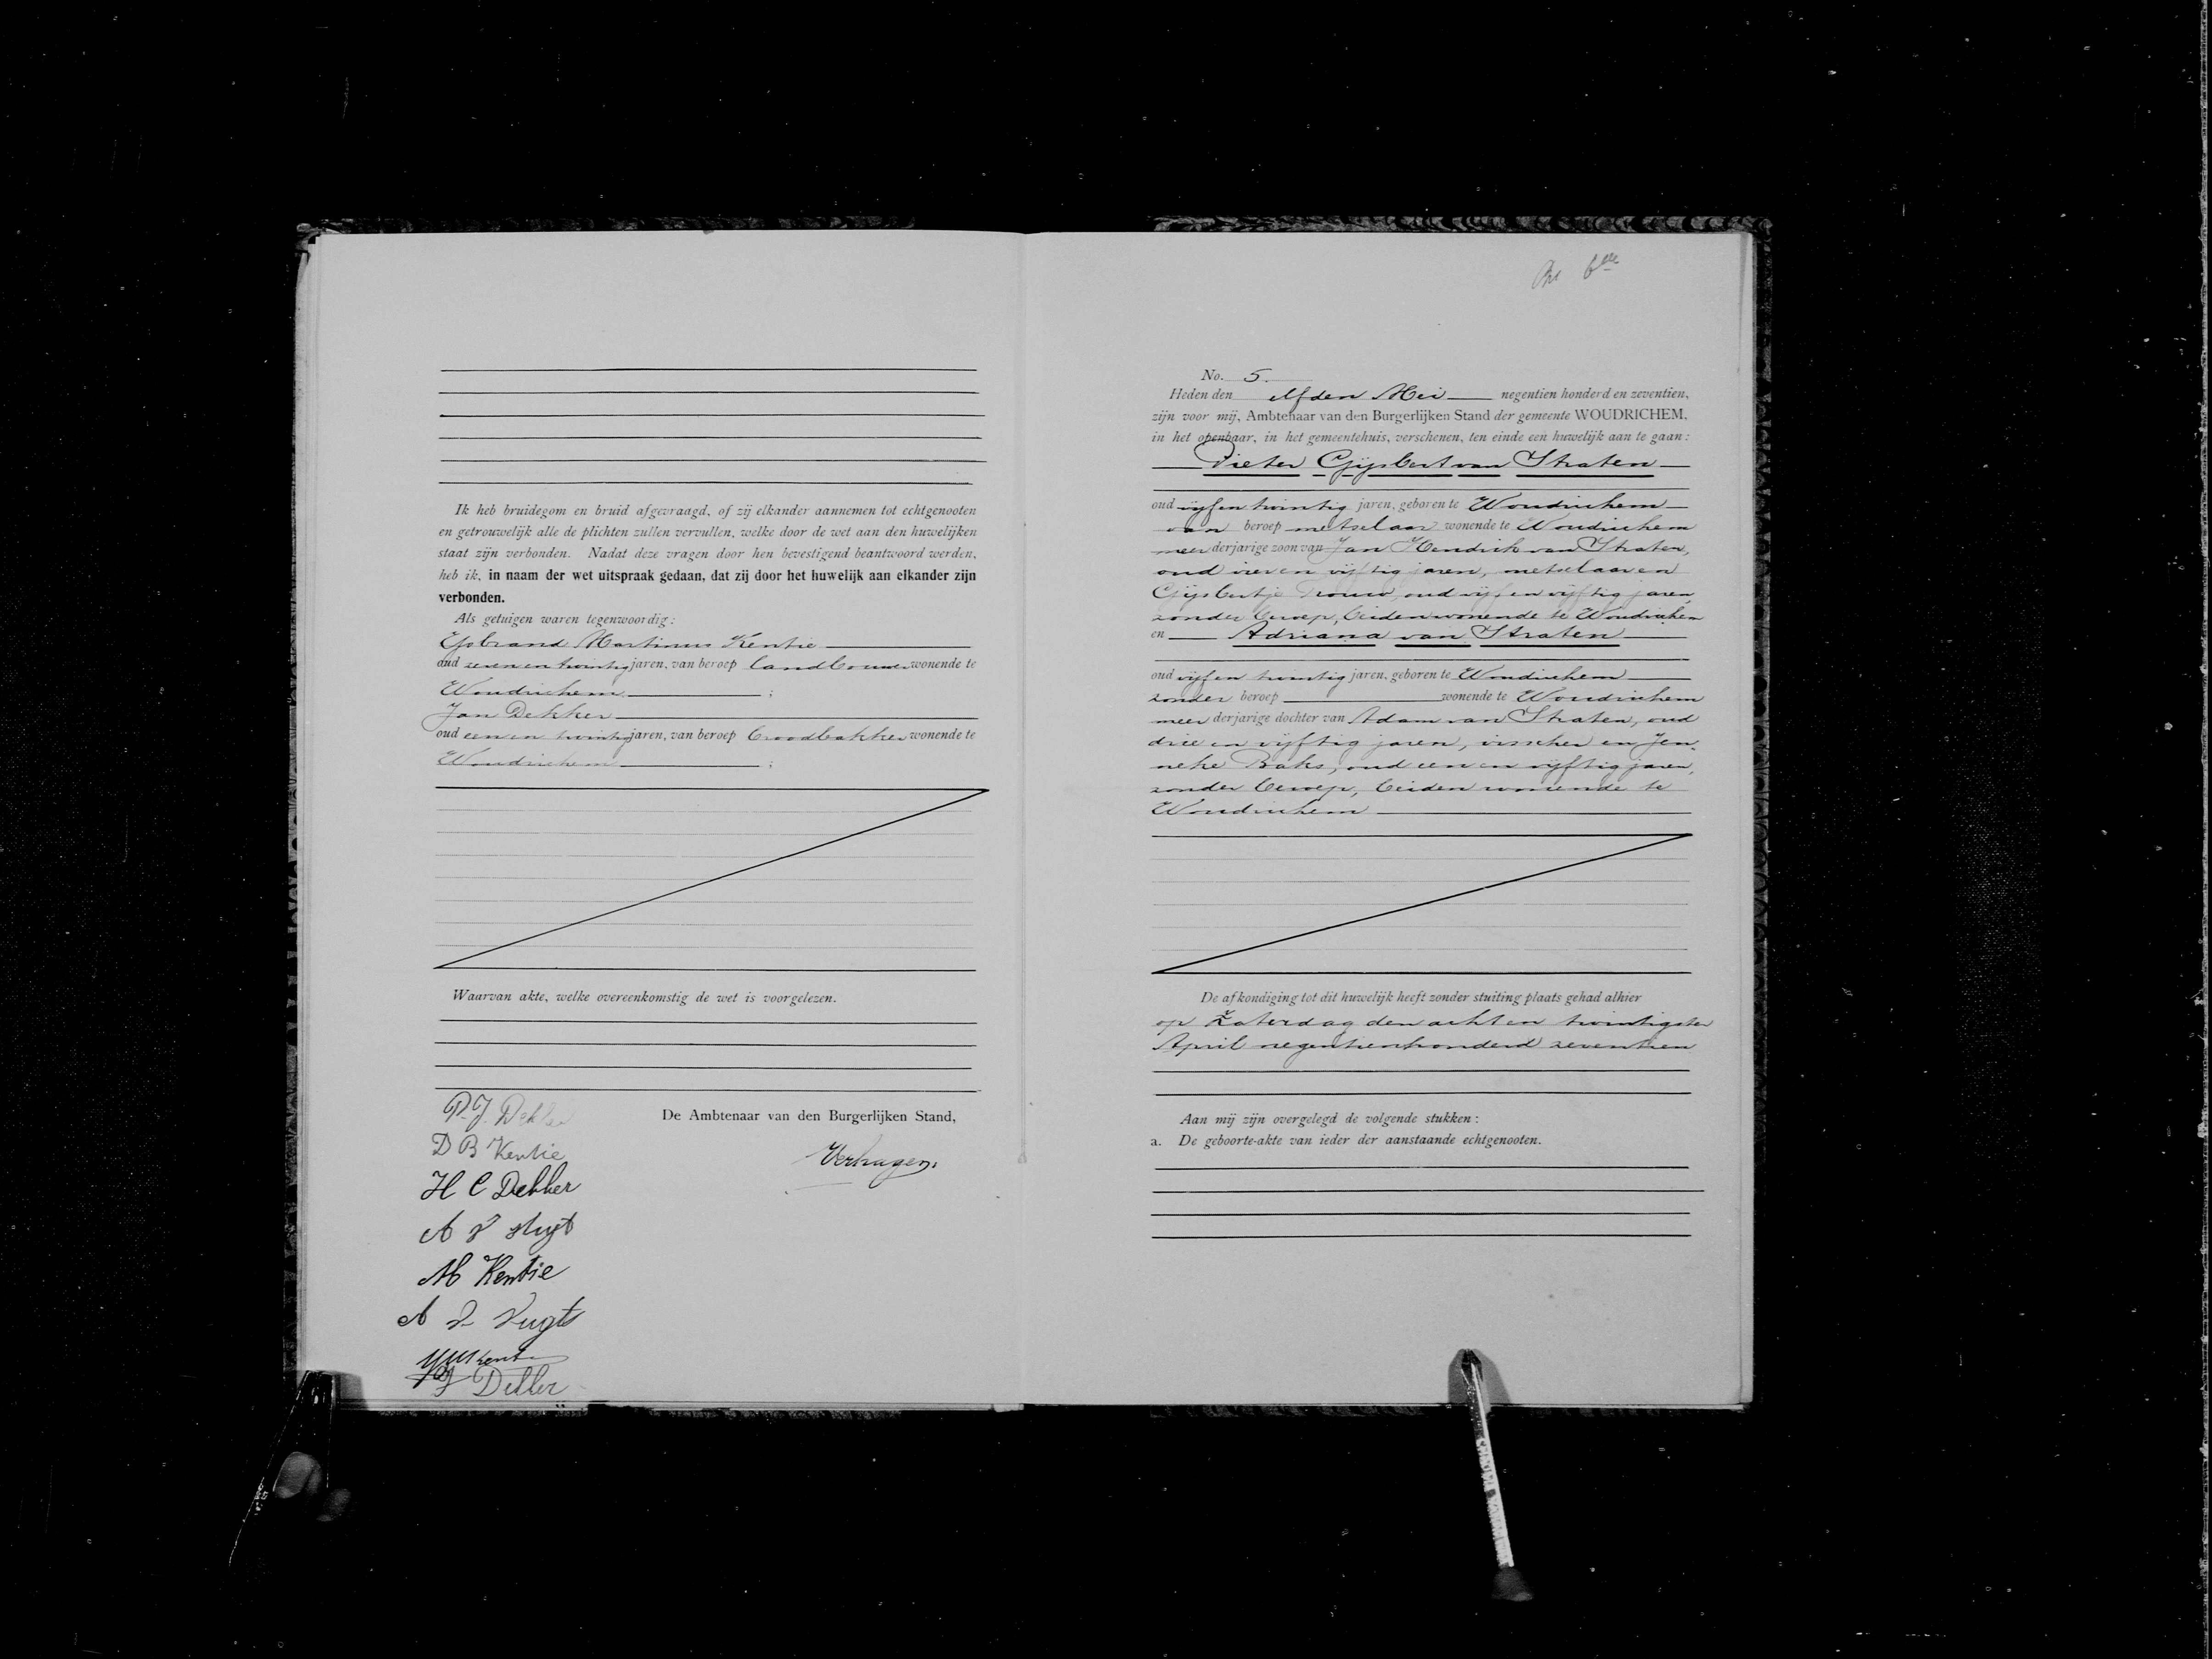 Ik heb bruidegom en bruid afgevraagd, of zij elkander aannemen tot echtgenooten
en getrouwelijk alle de plichten zullen vervullen, welke door de wet aan den huwelijken
staat zijn verbonden. Nadat deze vragen door hen bevestigend beantwoord werden,
heb ik, in naam der wet uitspraak gedaan, dat zij door het huwelijk aan elkander zijn
verbonden.
Als getuigen waren tegenwoordig:
IJsbrand Martinus Kentie
oud zeven en twintig jaren, van beroep landbouwer wonende te
Woudrichem ;
Jan Dekker
oud een en twintig jaren, van beroep broodbakker wonende te
Woudrichem ;
Waarvan akte, welke overeenkomstig de wet is voorgelezen.
P. J. Dekker
De Ambtenaar van den Burgerlijken Stand,
D B Kentie
Verhagen.
H C Dekker
A
M Kentie
A
Kentie
J Dekker
No. 5.
Heden den elfden Mei negentien honderd en zeventien,
zijn voor mij, Ambtenaar van den Burgerlijken Stand der gemeente WOUDRICHEM,
in het openbaar, in het gemeentehuis, verschenen, ten einde een huwelijk aan te gaan:
Pieter Gijsbert van Straten
oud vijf en twintig jaren, geboren te Woudrichem
van beroep metselaar wonende te Woudrichem
meer derjarige zoon van Jan Hendrik van Straten,
oud vier en vijftig jaren, metselaar en
Gijsbertje Trouw, oud vijf en vijftig jaren,
zonder beroep, beiden wonende te Woudrichem
en Adriana van Straten
oud vijf en twintig jaren, geboren te Woudrichem
zonder beroep wonende te Woudrichem
meer derjarige dochter van Adam van Straten, oud
drie en vijftig jaren, visscher en Jen
neke Baks, oud een en vijftig jaren,
zonder beroep, beiden wonende te
Woudrichem
De afkondiging tot dit huwelijk heeft zonder stuiting plaats gehad alhier
op Zaterdag den acht en twintigsten
April negentienhonderd zeventien
Aan mij zijn overgelegd de volgende stukken:
a. De geboorte-akte van ieder der aanstaande echtgenooten.